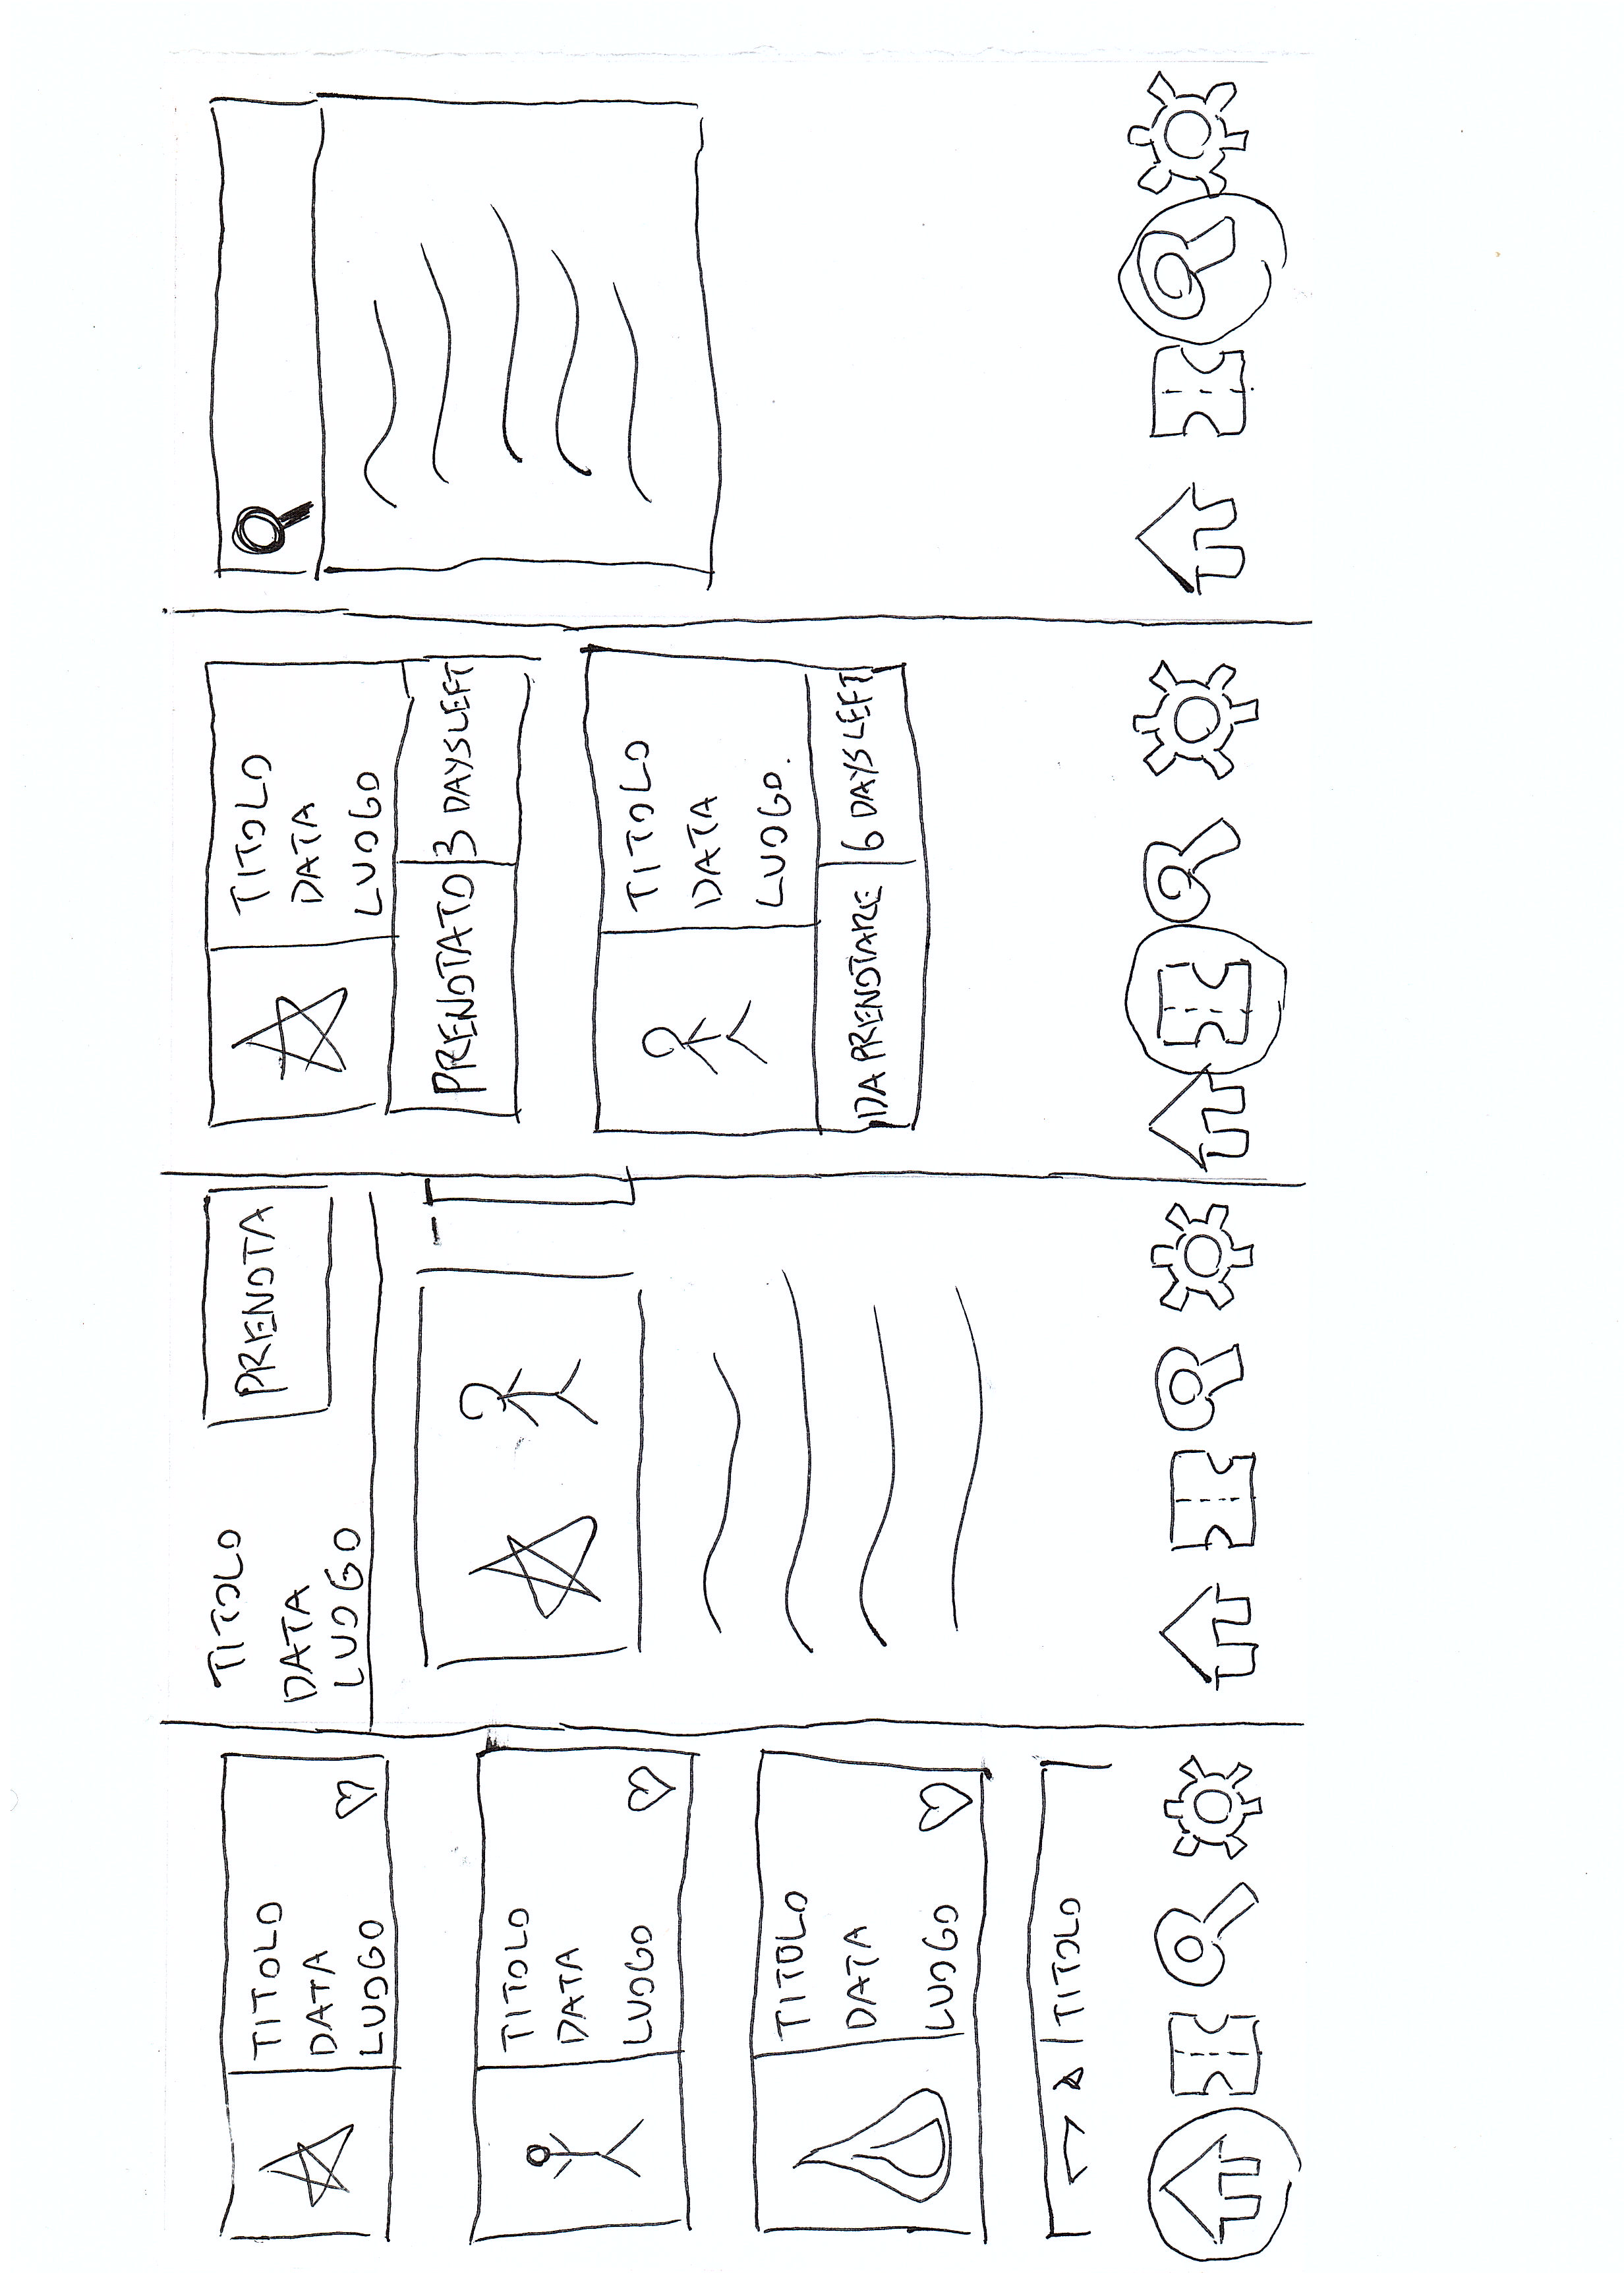 TITOLO
DATA
LUOGO
TITOLO
DATA
LUOGO
TITOLO
DATA
LUOGO
TITOLO
TITOLO
DATA
LUOGO
PRENOTA
TITOLO
DATA
LUOGO
PRENOTATO
3 DAYS LEFT
TITOLO
DATA
LUOGO.
DA PRENOTARE
6 DAYS LEFT